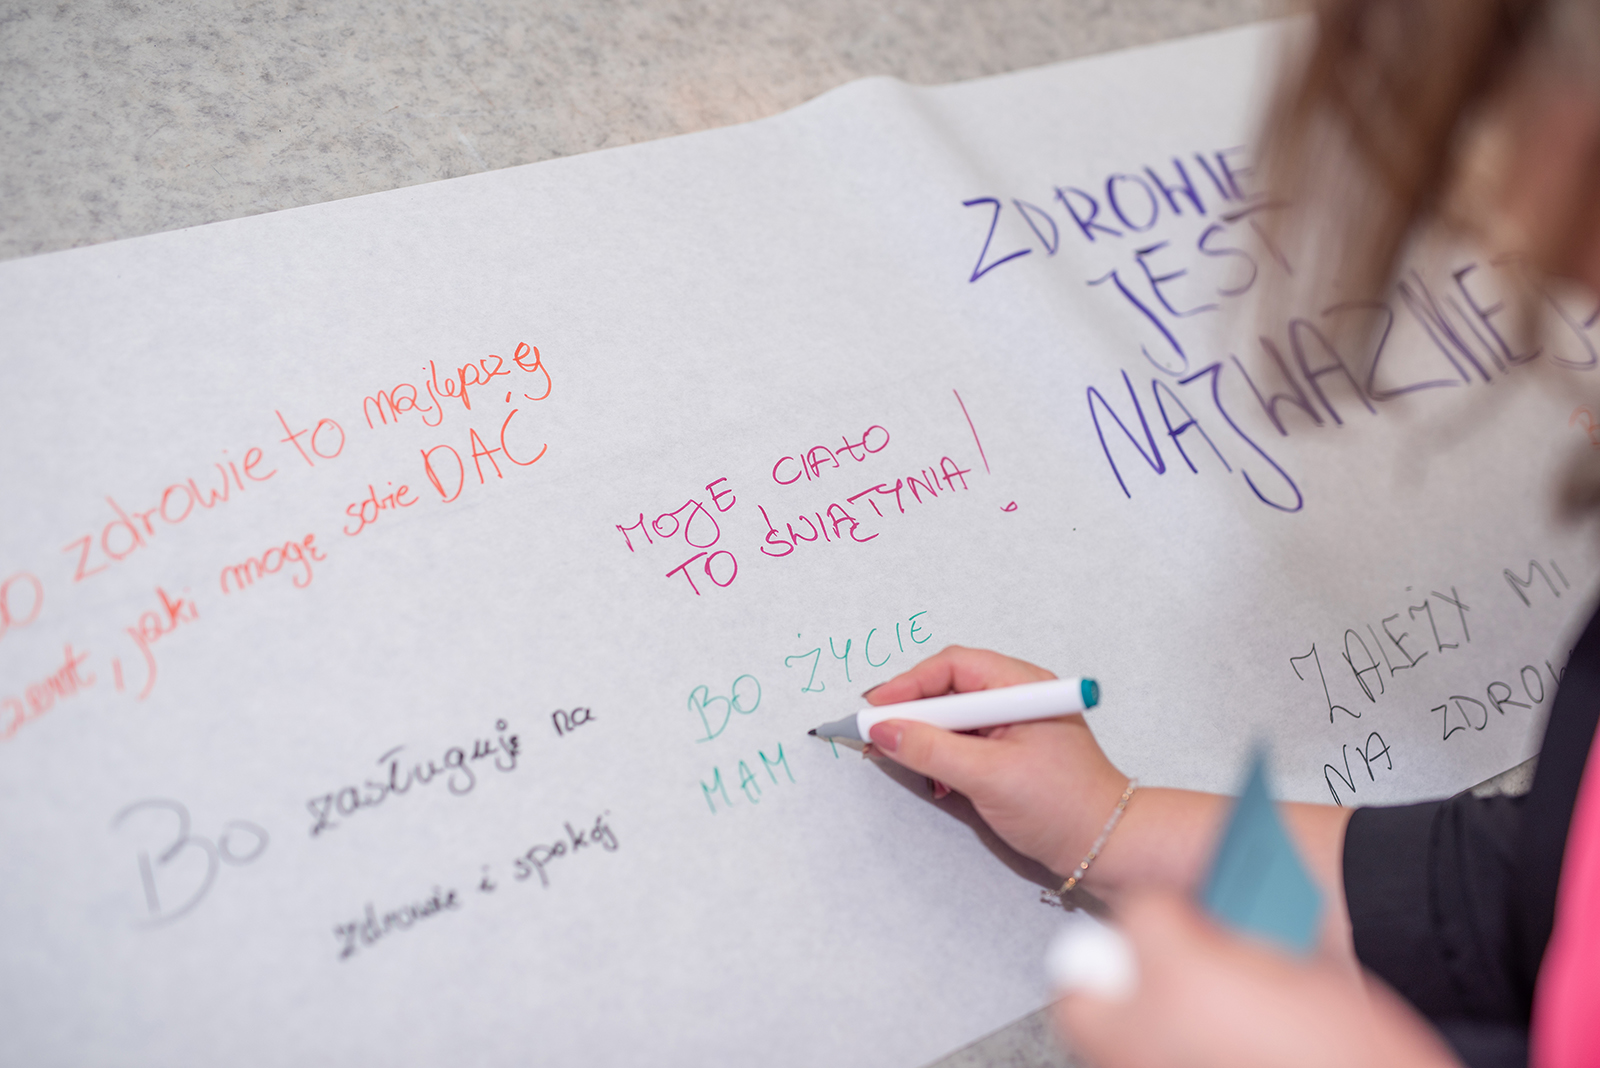 zdrowie to najlepszy
, jaki mogę sobie DAĆ
MOJE CIAŁO
TO ŚWIĄTYNIA!
ZDROWIE
JEST
NAJWAŻNIEJ
Bo zasługuję na
zdrowie i spokój
BO ŻYCIE
MAM
ZALEŻY MI
NA ZDROW